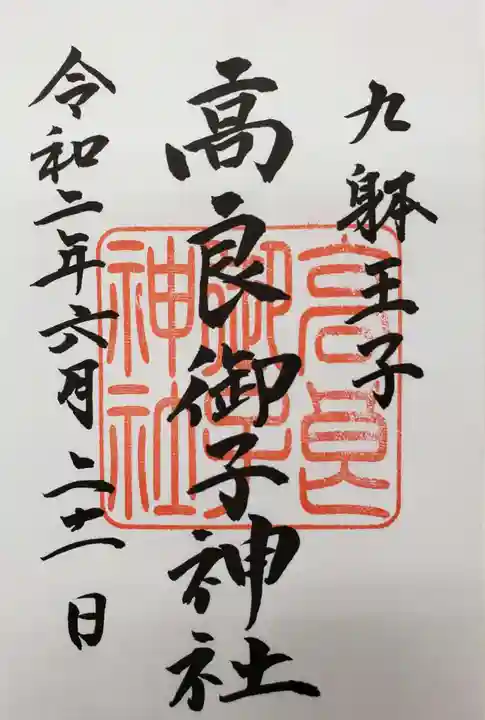 九躰王子
高良御子神社
令和二年六月二十一日
高良
御子
神社